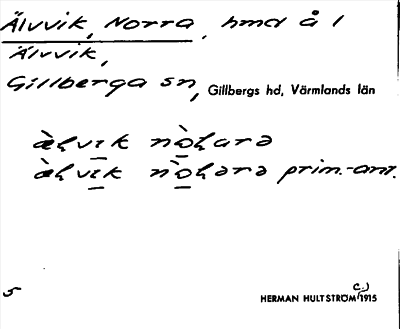 Älvvik, Norra, hmd å 1
Älvvik,
Gillberga sn, Gillbergs hd, Värmlands län
æ̀ɽvɪk nɔ̀ɽarə
æ̀ɽvɪk nɔ̀ɽərə prim.-ant.
5 HERMAN HULTSTRÖM c.) 1915